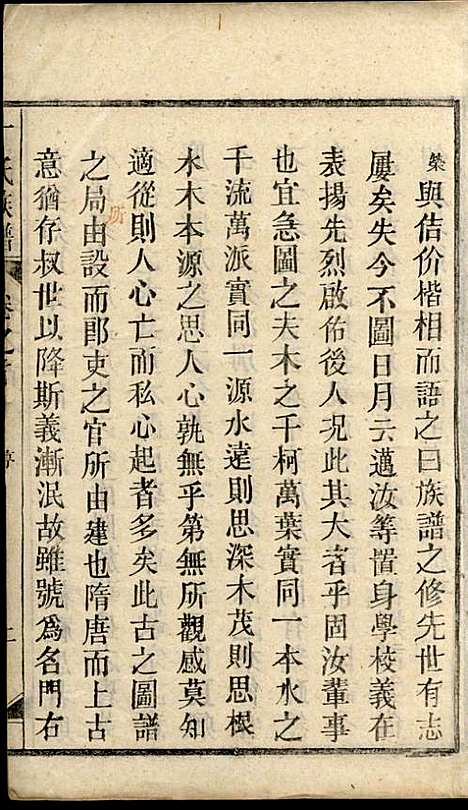 榮與佶价楷相而語之曰族譜之修先世有志
屢矣失今不圖日月云邁汝等置身學校義在
表揚先烈啟佑後人况此其大者乎固汝輩事
也宜急圖之夫木之千柯萬葉實同一本水之
千流萬派實同一源水遠則思深木茂則思根
水木本源之思人心孰無乎第無所觀感莫知
適從則人心亡而私心起者多矣此古之圖譜
之局由設而郎吏之官所由建也隋唐而上古
所
意猶存叔世以降斯義漸泯故雖號爲名門右
氏族譜